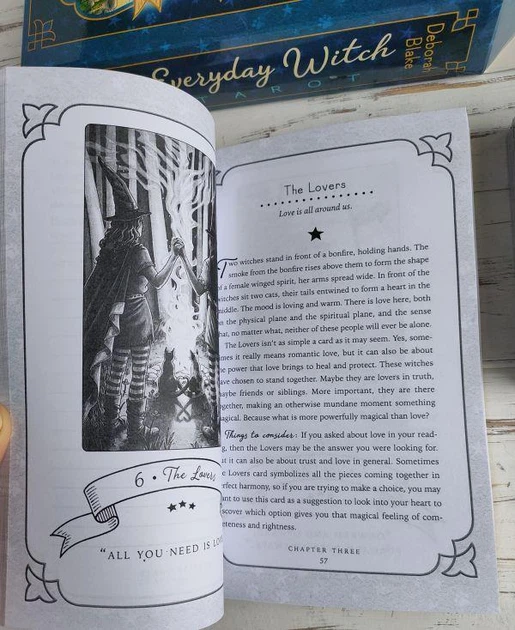 Everyday Witch
TAROT
Deborah
Blake
6 • The Lovers
"ALL YOU NEED IS
The Lovers
Love is all around us.
Two witches stand in front of a bonfire, holding hands. The
smoke from the bonfire rises above them to form the shape
a female winged spirit, her arms spread wide. In front of the
witches sit two cats, their tails entwined to form a heart in the
middle. The mood is loving and warm. There is love here, both
the physical plane and the spiritual plane, and the sense
no matter what, neither of these people will ever be alone.
The Lovers isn't as simple a card as it may seem. Yes, some-
it really means romantic love, but it can also be about
power that love brings to heal and protect. These witches
chosen to stand together. Maybe they are lovers in truth,
friends or siblings. More important, they are there
making an otherwise mundane moment something
Because what is more powerfully magical than love?
Things to consider: If you asked about love in your read-
then the Lovers may be the answer you were looking for.
it can also be about trust and love in general. Sometimes
Lovers card symbolizes all the pieces coming together in
harmony, so if you are trying to make a choice, you may
to use this card as a suggestion to look into your heart to
which option gives you that magical feeling of com-
and rightness.
CHAPTER THREE
57